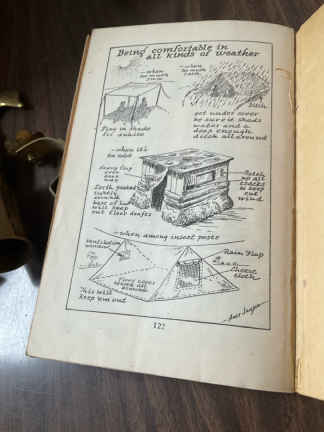 Being comfortable in
all kinds of weather
—when
too much
sun
—when
too much
rain.
Fly in shade
for awhile
get under cover
be sure it sheds
water and a
deep enough
ditch all around
—when it's
too cold
heavy flap
over
door
way
Earth packed
tightly
around
base of
will keep
out floor drafts
Patch
up all
cracks
to keep
out
wind
—when among insect pests
Ventilation
window
Rain Flap
Cheese
cloth
Floor cloth
sewed all
around
This will
keep 'em out
122